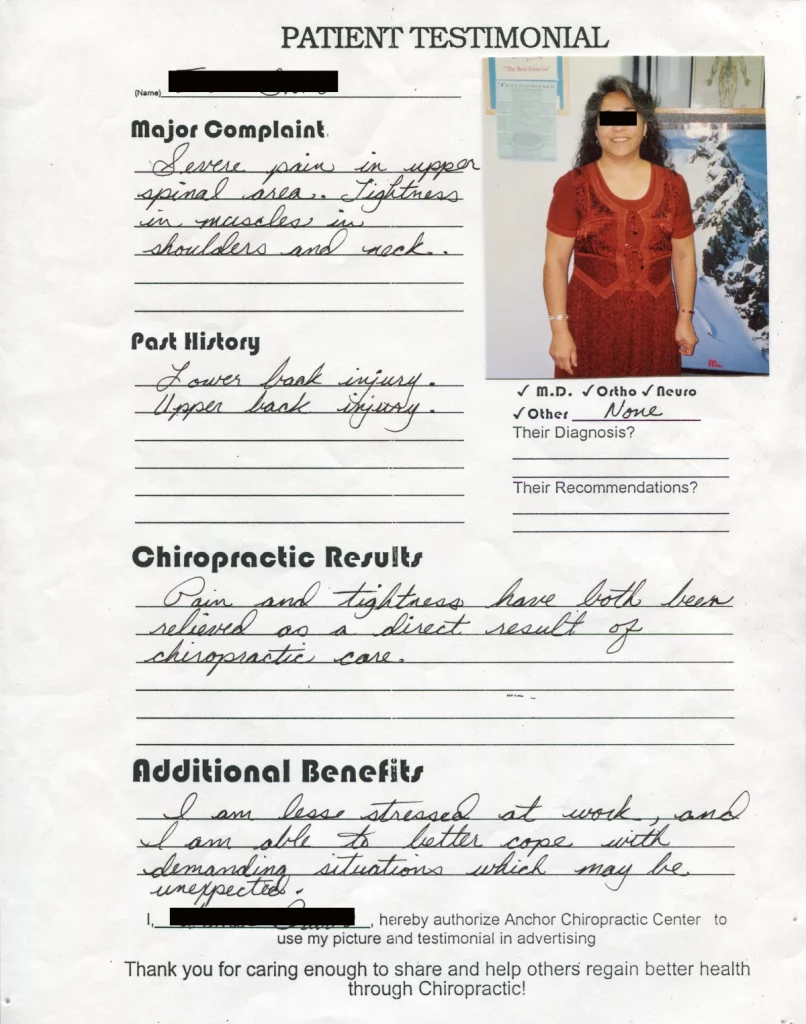 PATIENT TESTIMONIAL
(Name)
Major Complaint
Severe pain in upper
spinal area. Tightness
in muscles in
shoulders and neck..
"The Best Exercise"
Past History
Lower back injury.
Upper back injury.
✓ M.D. ✓ Ortho ✓ Neuro
✓ Other None
Their Diagnosis?
Their Recommendations?
Chiropractic Results
Pain and tightness have both been
relieved as a direct result of
chiropractic care.
Additional Benefits
I am less stressed at work, and
I am able to better cope with
demanding situations which may be
unexpected.
I, , hereby authorize Anchor Chiropractic Center to
use my picture and testimonial in advertising
Thank you for caring enough to share and help others regain better health
through Chiropractic!